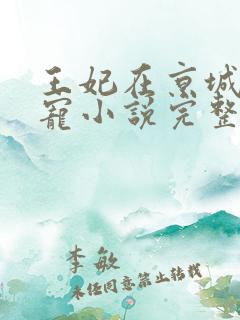 王妃在京城
宠小说完整
李敏
未经同意禁止转载